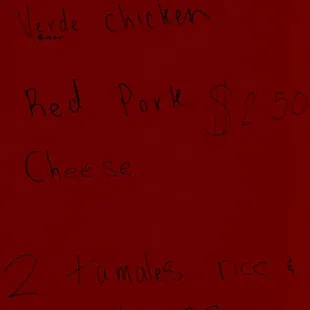 Verde chicken
Red Pork $2.50
Cheese
2 tamales rice &